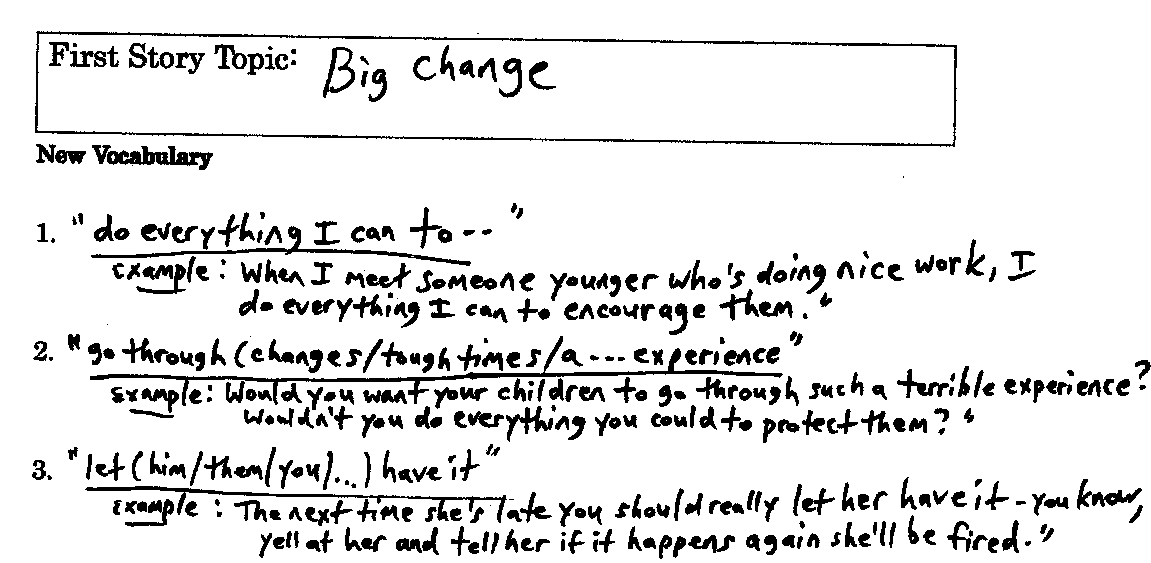 First Story Topic: Big change
New Vocabulary
1. "do everything I can to --"
Example: When I meet someone younger who's doing nice work, I
do everything I can to encourage them."
2. "go through (changes/tough times/a --- experience"
Example: Would you want your children to go through such a terrible experience?
Wouldn't you do everything you could to protect them?"
3. "let (him/them/you/...) have it"
Example: The next time she's late you should really let her have it - you know,
yell at her and tell her if it happens again she'll be fired."